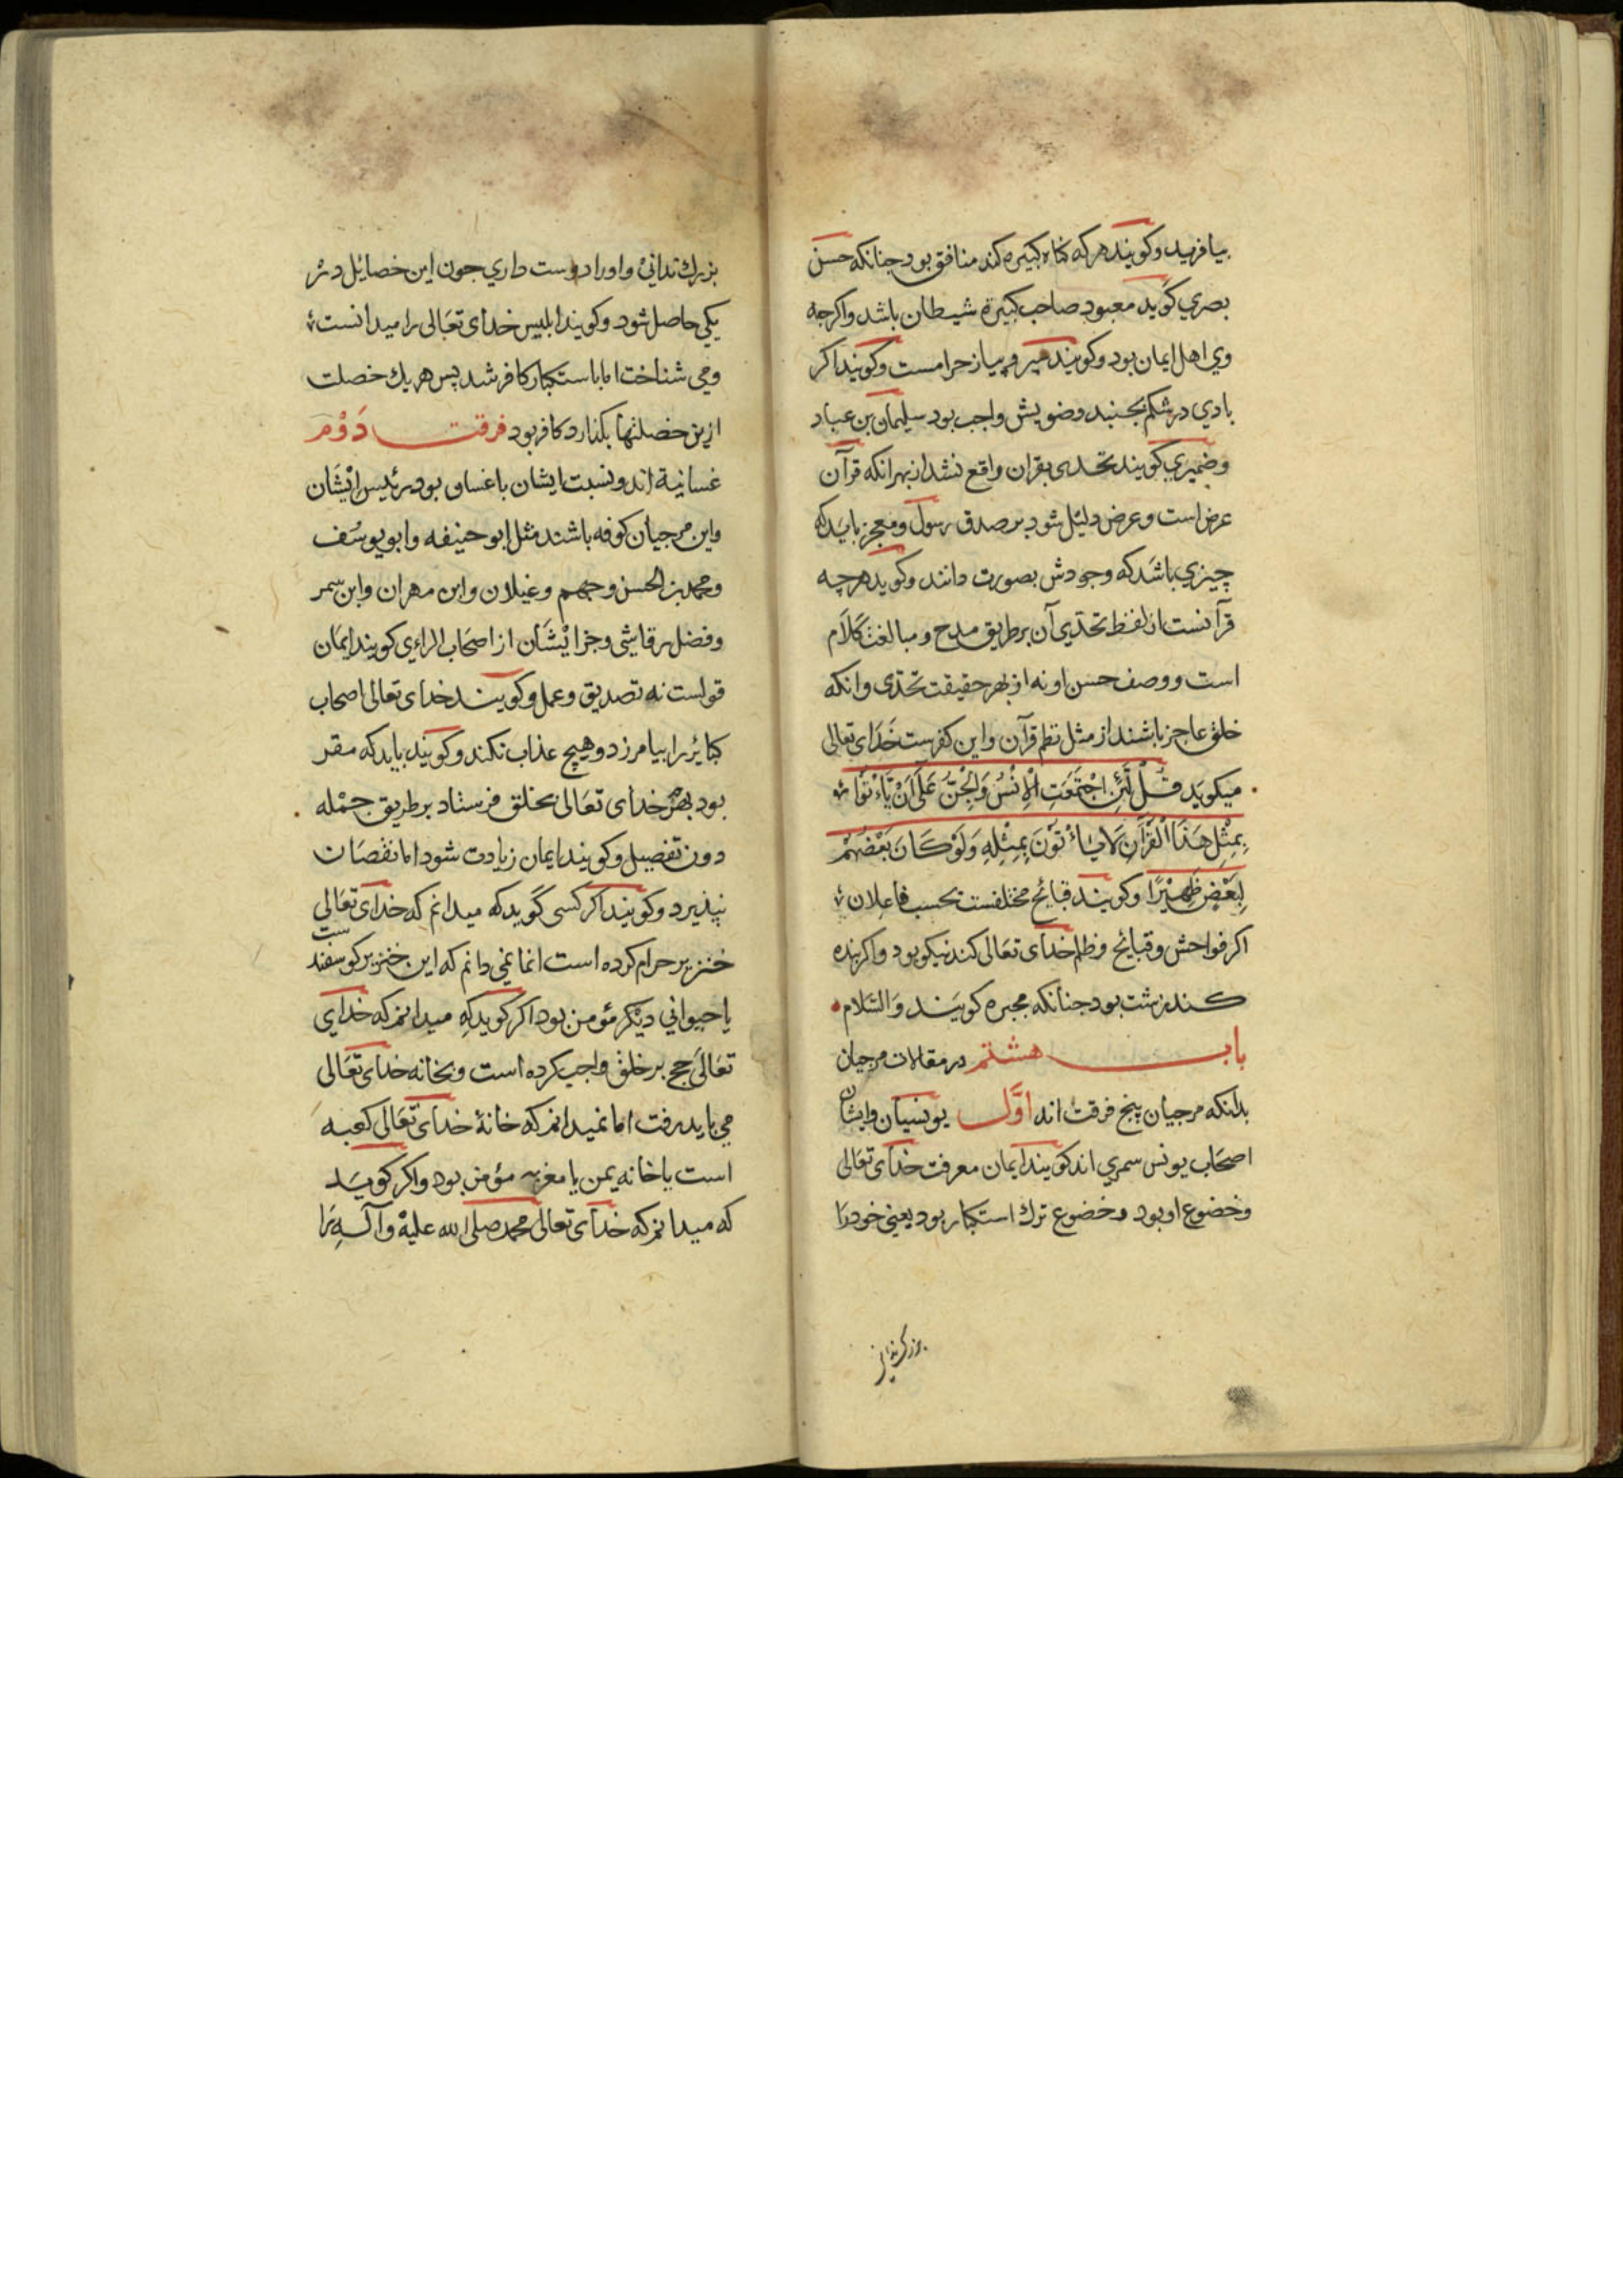 بیافرید وکویند هرکه کناه کبیره کند منافق بود جنانکه حسن
بصري کوید معبود صاحب کبیرة شیطان باشد واکرجه
وي اهل ایمان بود وکویند سیر وپیاز حرامست وکویند اکر
بادي درشکم بجنبد وضویش واجب بود سلیمان بن عباد
وضمیري کویند تحدی بقران واقع نشد از بهر انکه قرآن
عرض است وعرض دلیل شود بر صدق رسول ومعجز باید که
چیزي باشد که وجودش بصورت دانند وکوید هرچه
قرآنست از لفظ تحدّي آن برطریق مدح ومبالغت کلام
است ووصف حسن او نه از بهر حقیقت تحدّی وانکه
خلق عاجز باشند از مثل نظم قرآن واین کفرست خدای تعالی
میکوید قُلْ لَّئِنِ اجْتَمَعَتِ الْاِنْسُ وَالْجِنُّ عَلَىٰ اَنْ يَّاْتُوْا
بِمِثْلِ هَذَا الْقُرْآنِ لَا يَاْتُوْنَ بِمِثْلِهِ وَلَوْ كَانَ بَعْضُهُمْ
لِبَعْضٍ ظَهِيْرًا وکویند قبائح مختلفست بحسب فاعلان
اکر فواحش وقبایح وظلم خدای تعالی کند نیکو بود واکر بنده
کند زشت بود جنانکه مجبره کویند والسّلام
باب هشتم در مقالات مرجیان
بدانکه مرجیان پنج فرقت اند اوّل یونسیان وایشان
اصحاب یونس سمري اند کویند ایمان معرفت خدای تعالی
وخضوع او بود وخضوع ترك استکبار بود یعنی خود را
بزرك ندانی
بزرك ندانی واورا دوست داري جون این خصایل در
یکی حاصل شود وکویند ابلیس خدای تعالی را میدانست
ومی شناخت اما باستکبار کافر شد پس هریك خصلت
ازین خصلتها بکذارد کافر بود فرقت دوّم
غسانیة اند ونسبت ایشان با غسان بود رئیس ایشان
واین مرجیان کوفه باشند مثل ابو حنیفه وابو یوسف
ومحمد بن الحسن وجهم وغیلان وابن مهران وابن سمر
وفضل رقاشی وجز ایشان از اصحاب الراي کویند ایمان
قولست نه تصدیق وعمل وکویند خدای تعالی اصحاب
کبایر را بیامرزد وهیچ عذاب نکند وکویند باید که مقر
بود بهرچه خدای تعالی بخلق فرستاد برطریق جمله
دون تفصیل وکویند ایمان زیادت شود اما نقصان
نپذیرد وکویند اکر کسی کوید که میدانم که خدای تعالی
خنزیر حرام کرده است اما نمی دانم که این خنزیر کوسفند ست
یا حیوانی دیکر مؤمن بود اکر کوید که میدانم که خدای
تعالی حج بر خلق واجب کرده است وبخانه خدای تعالی
می باید رفت اما نمیدانم که خانهٔ خدای تعالی کعبه
است یا خانه یمن یا مغرب مؤمن بود واکر کوید
که میدانم که خدای تعالی محمد صلی الله علیه وآله را